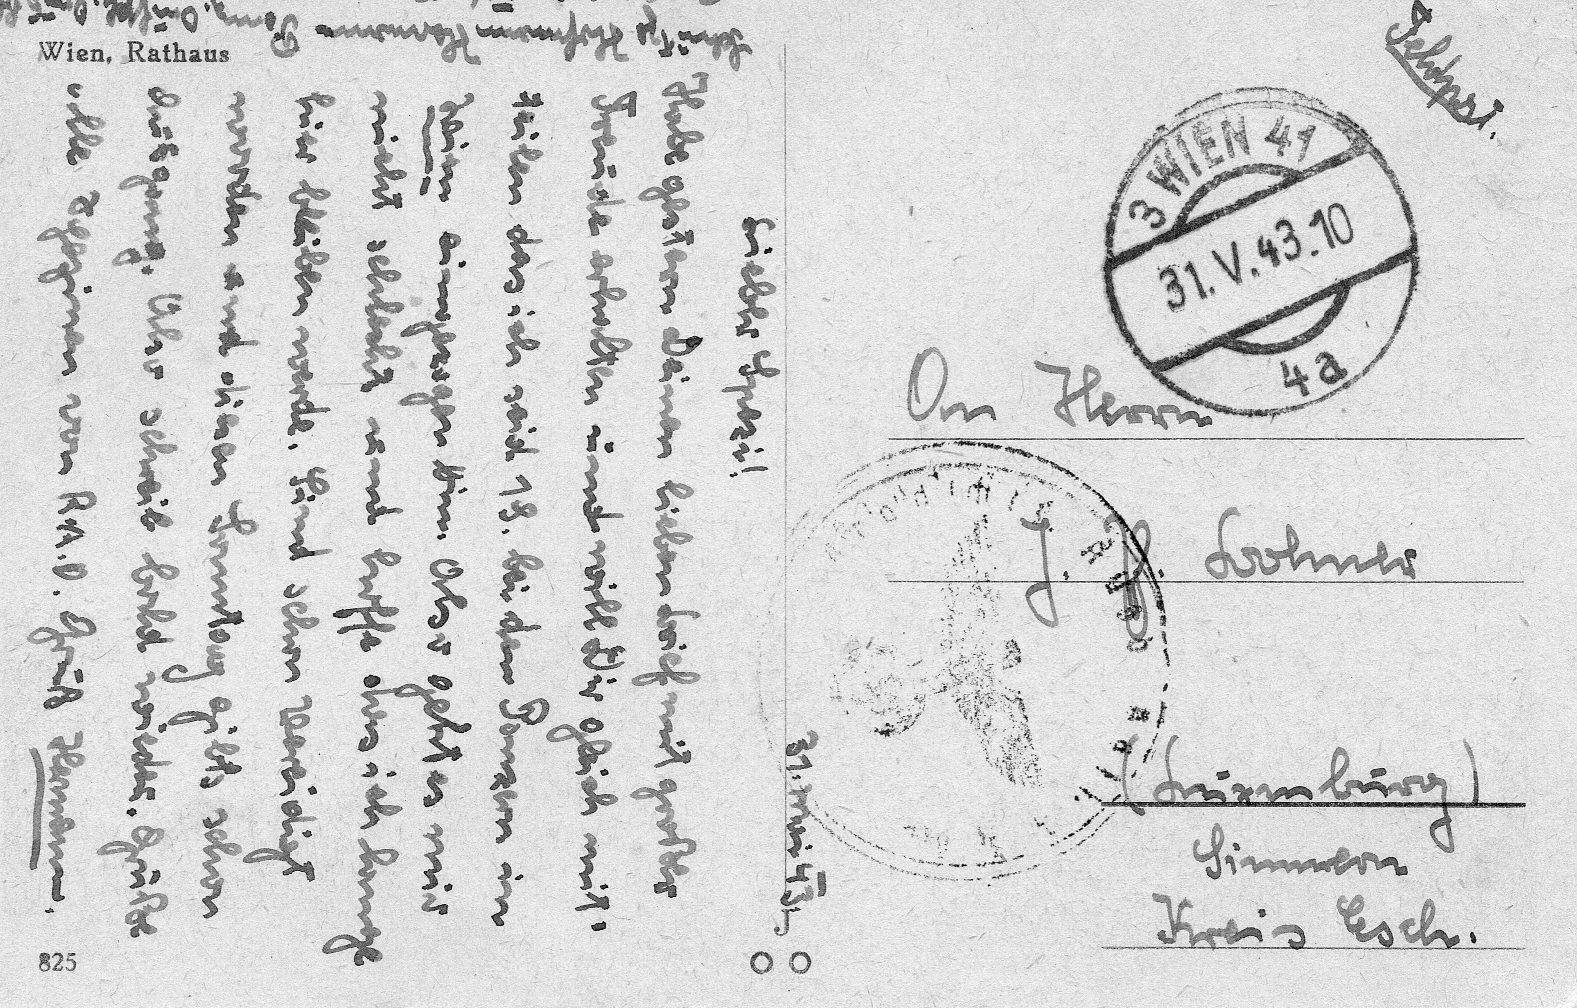 Wien, Rathaus
Feldpost.
3 WIEN 41
31. V. 43. 10
4a
31. Mai 43.
Lieber Spezi!
Habe gestern Deinen lieben Brief mit großer
Freude erhalten und will Dir gleich mit-
teilen das ich seid 18. bei den Panzern in
Wien eingezogen bin. Also geht es mir
nicht schlecht und hoffe das ich lange
hier bleiben werde. Sind schon vereidigt
worden und diesen Sonntag gibts schon
Ausgang. Also schreib bald wieder. Grüße
alle von R.A.D. Gruß Hermann.
Schütze Hofmann Hermann
An Herrn
J. P. Lohmer
(Luxemburg)
Simmern
Kreis Esch.
825